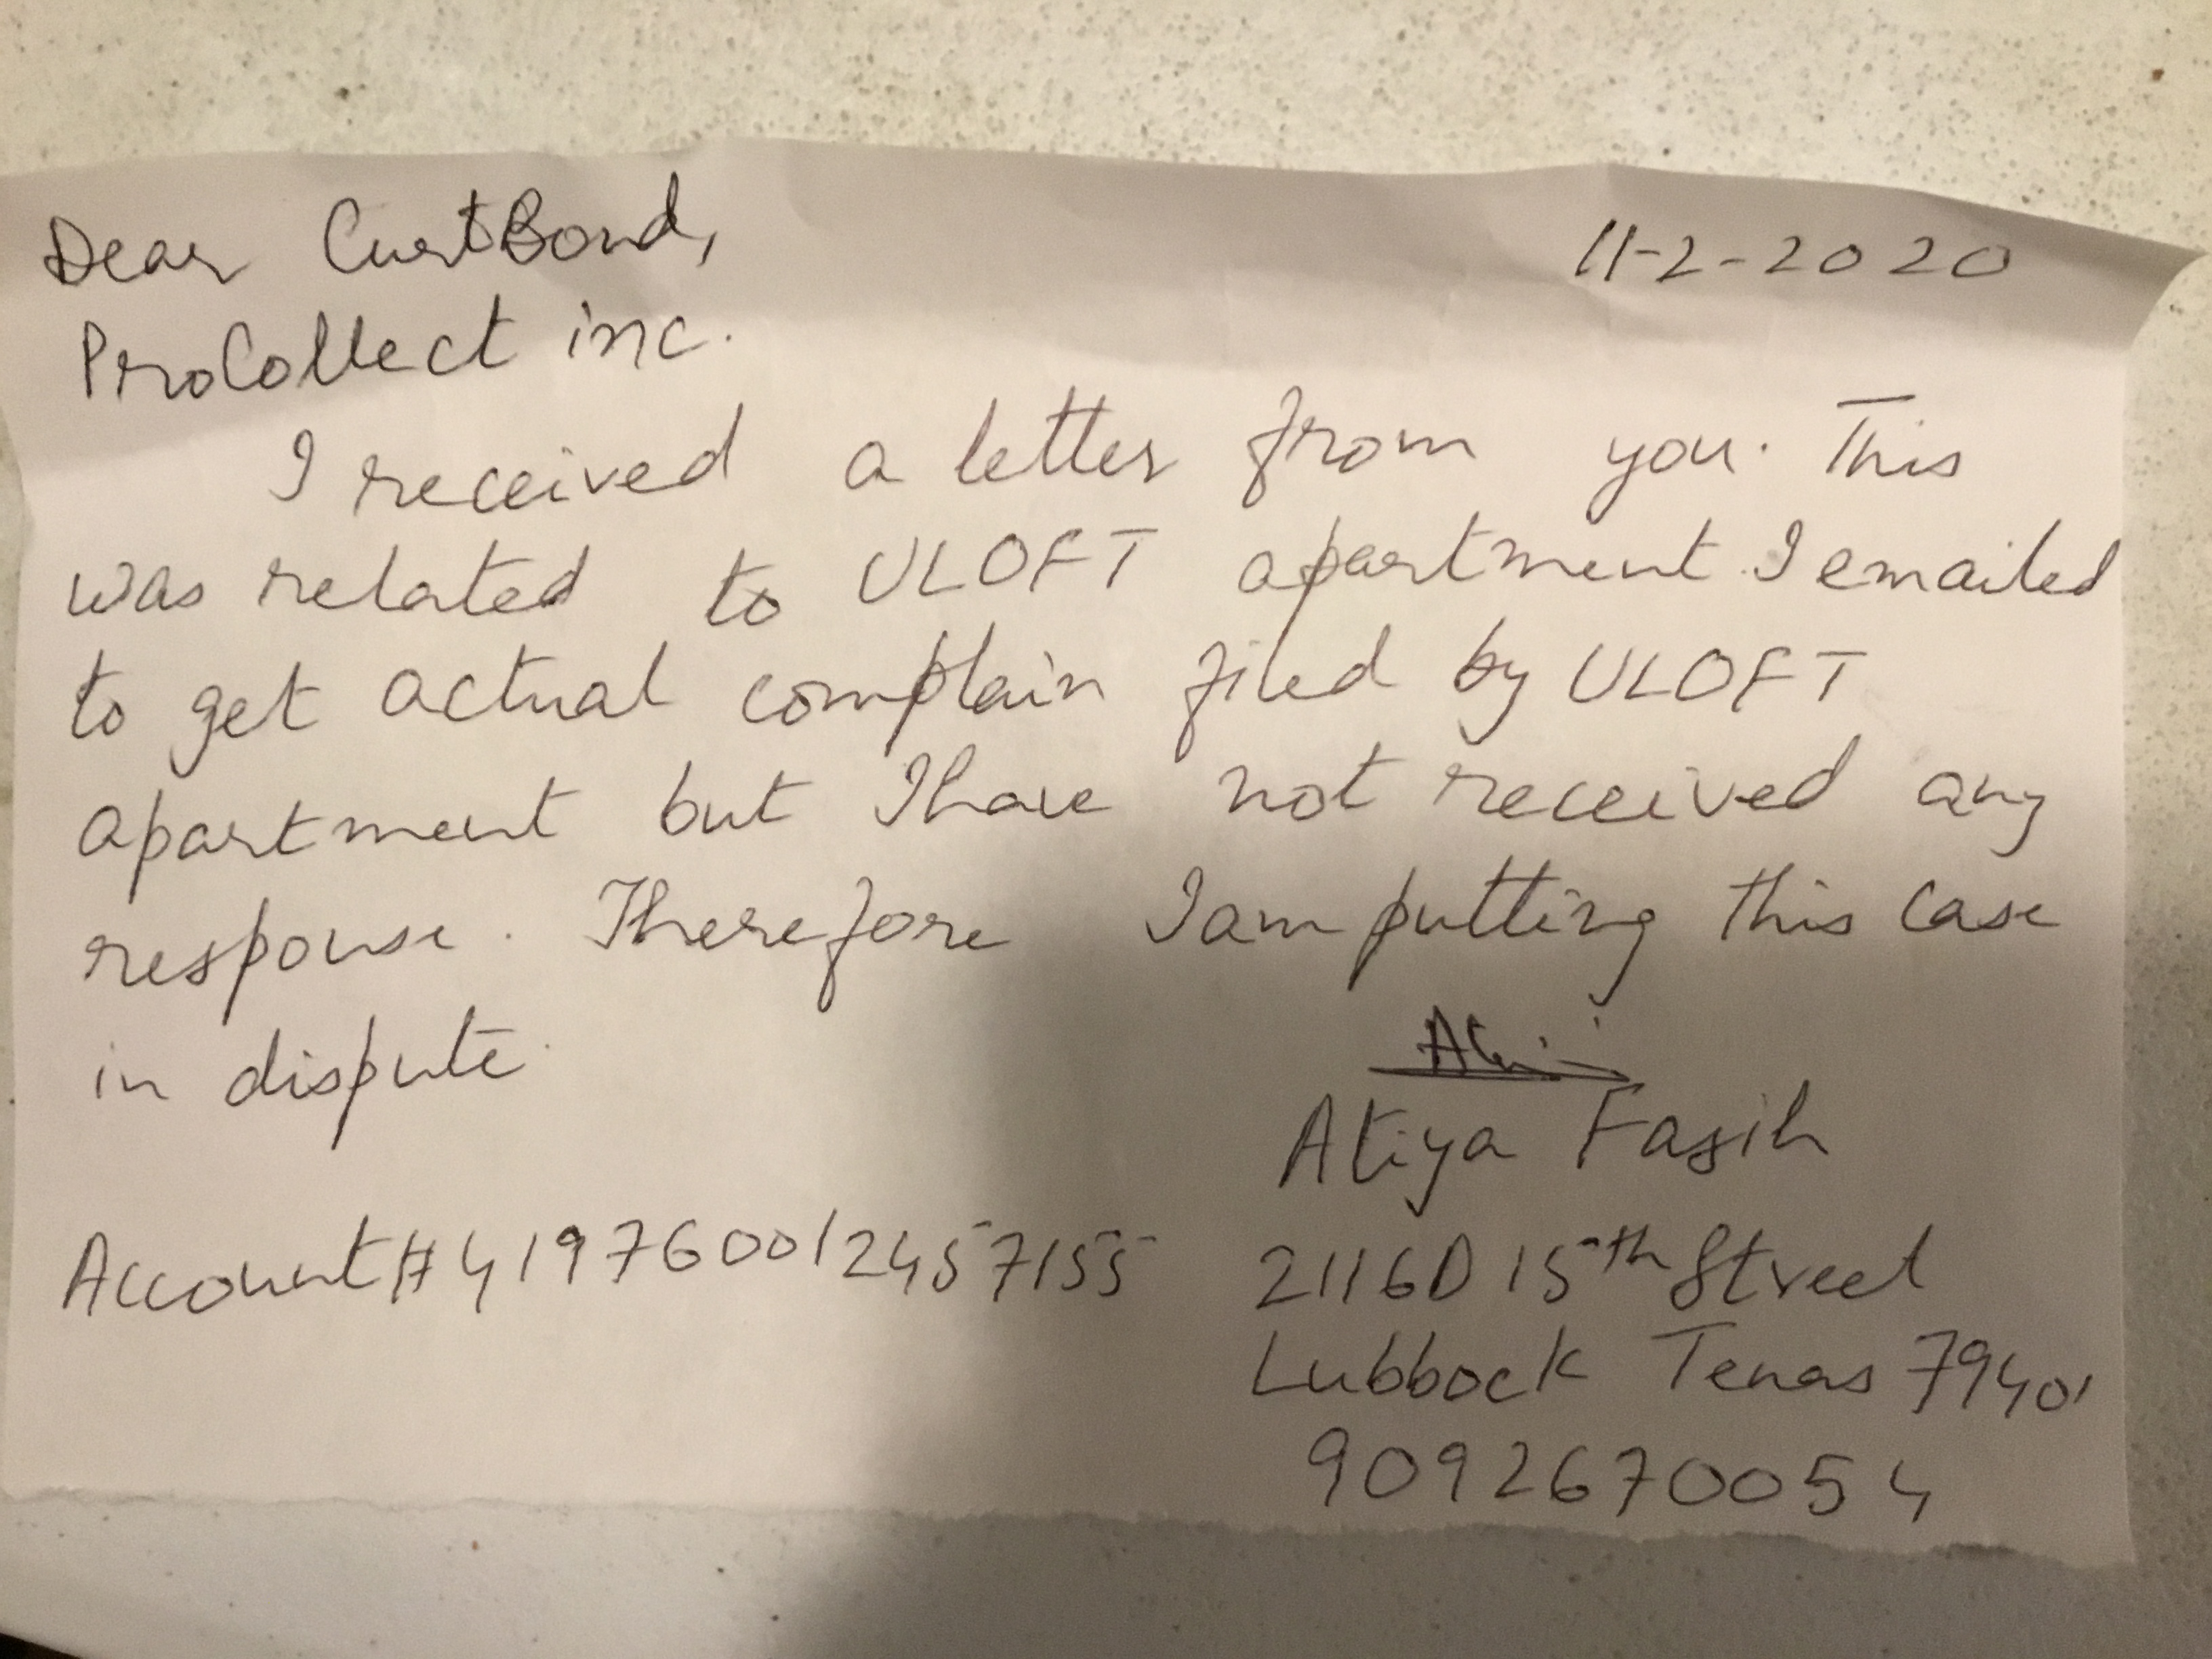 Dear Curt Bond,
11-2-2020
ProCollect inc.
I received a letter from you. This
was related to ULOFT apartment. I emailed
to get actual complain filed by ULOFT
apartment but I have not received any
response. Therefore I am putting this case
in dispute.
Atiya Fasih
Account # 419760012457155
2116D 15th Street
Lubbock Texas 79401
9092670054